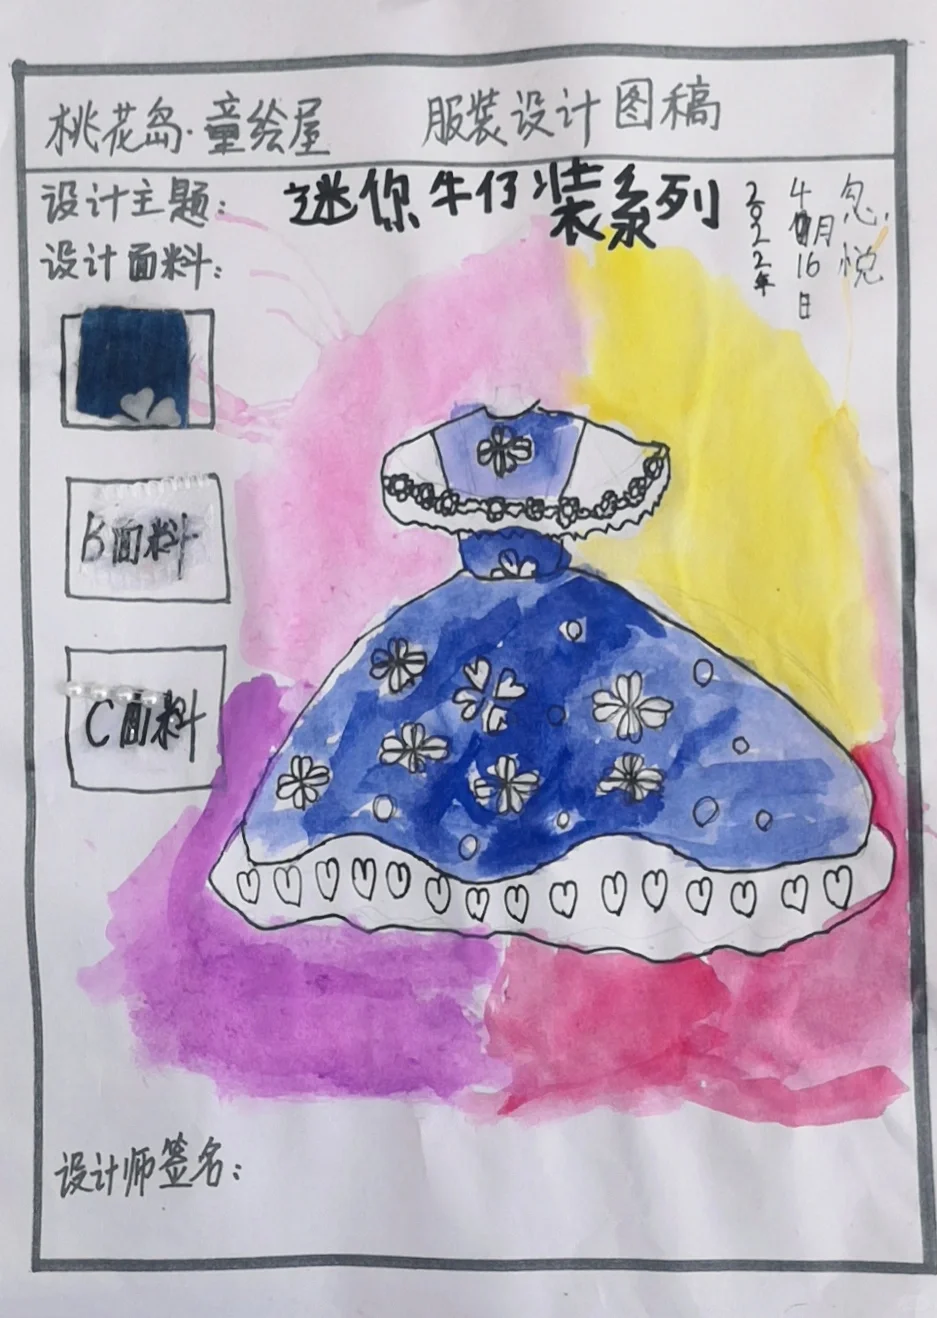 桃花岛·童绘屋 服装设计图稿
设计主题: 迷你牛仔装系列
2022年
4月
16日
悦
设计面料:
B面料
C面料
设计师签名: